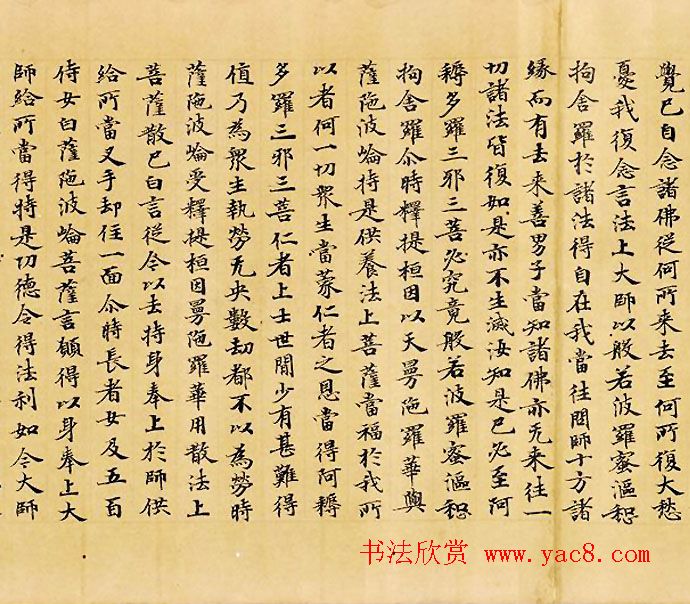 覺已自念諸佛從何所来去至何所復大愁
憂我復念言法上大師以般若波羅蜜漚惒
拘舍羅於諸法得自在我當往問師十方諸
緣而有去来善男子當知諸佛亦无来往一
切諸法皆復如是亦不生滅汝知是已必至阿
耨多羅三耶三菩必究竟般若波羅蜜漚惒
拘舍羅尒時釋提桓因以天曼陁羅華與
薩陁波崘持是供養法上菩薩當福於我所
以者何一切衆生當蒙仁者之恩當得阿耨
多羅三邪三菩仁者上士世間少有甚難得
值乃為衆生執勞无央數劫都不以為勞時
薩陁波崘受釋提桓因曼陁羅華用散法上
菩薩散已白言従今以去持身奉上於師供
給所當叉手却住一面尒時長者女及五百
侍女白薩陁波崘菩薩言願得以身奉上大
師給所當得持是功德令得法利如今大師
书法欣赏 www.yac8.com